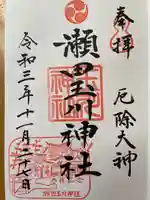 奉拝
厄除大神
瀬田玉川神社
令和三年十一月二十八日
瀬田玉川神社